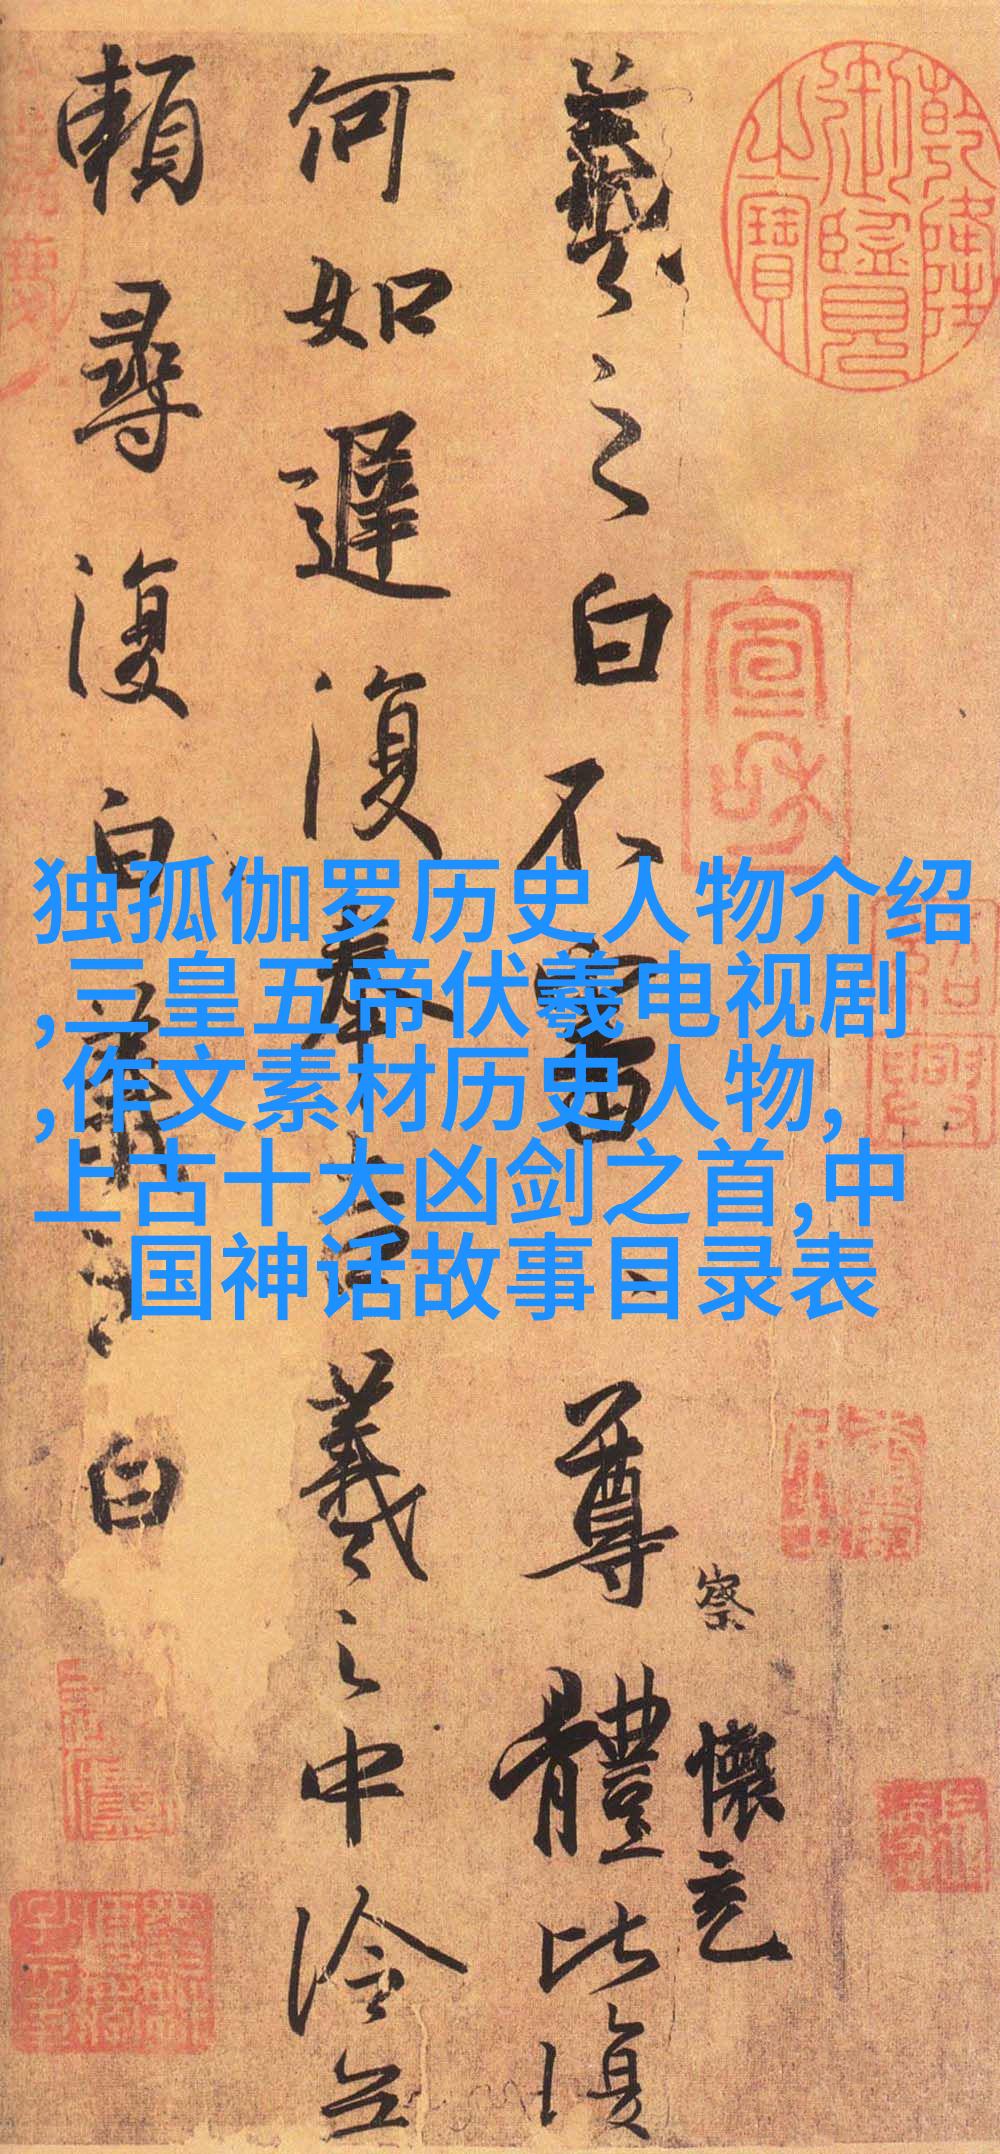 乾隆御覽之寶
宣和
紹興
察
懷充
羲之白不審尊體比復
何如遲復奉告羲之中冷無
賴尋復白羲之白
独孤伽罗历史人物介绍
,三皇五帝伏羲电视剧
,作文素材历史人物,
上古十大凶剑之首,中
国神话故事目录表